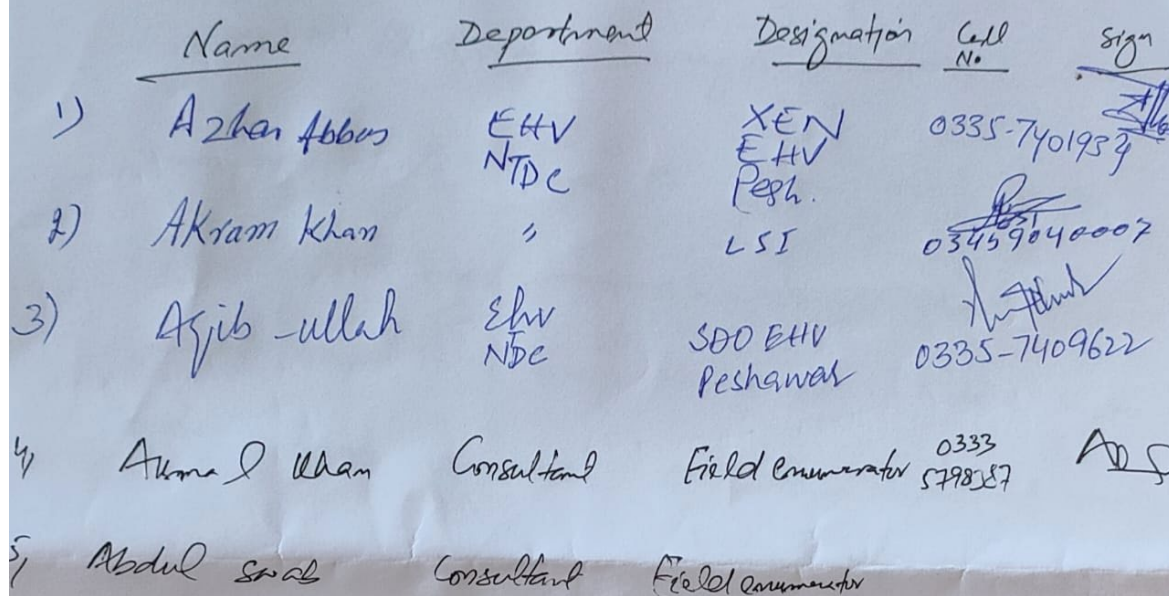 Name Department Designation Cell No. Sign
1) Azhar Abbas EHV NTDC XEN EHV Pesh. 0335-7401934
2) Akram Khan " LSI 03459040007
3) Aqib-ullah Ehv NDC SDO EHV Peshawar 0335-7409622
4) Akmal Khan Consultant Field enumerator 0333
5) Abdul Consultant Field enumerator